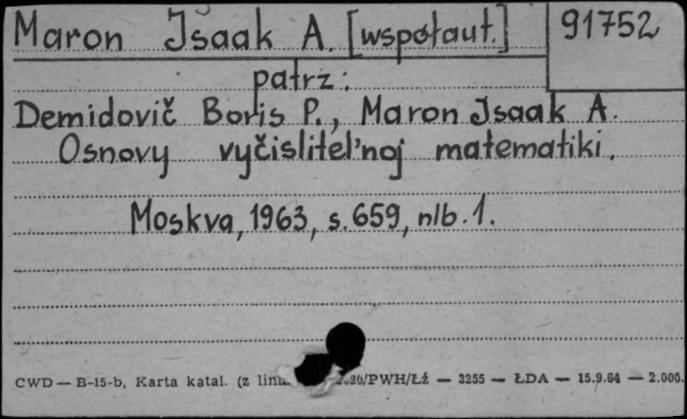 Maron Isaak A. [współaut.] 91752
patrz:
Demidovič Boris P., Maron Isaak A.
Osnovy vyčislitel'noj matematiki.
Moskva, 1963, s. 659, nlb. 1.
CWD — B-15-b, Karta katal. (z /PWH/Łź — 3255 — ŁDA — 15.9.64 — 2.000.